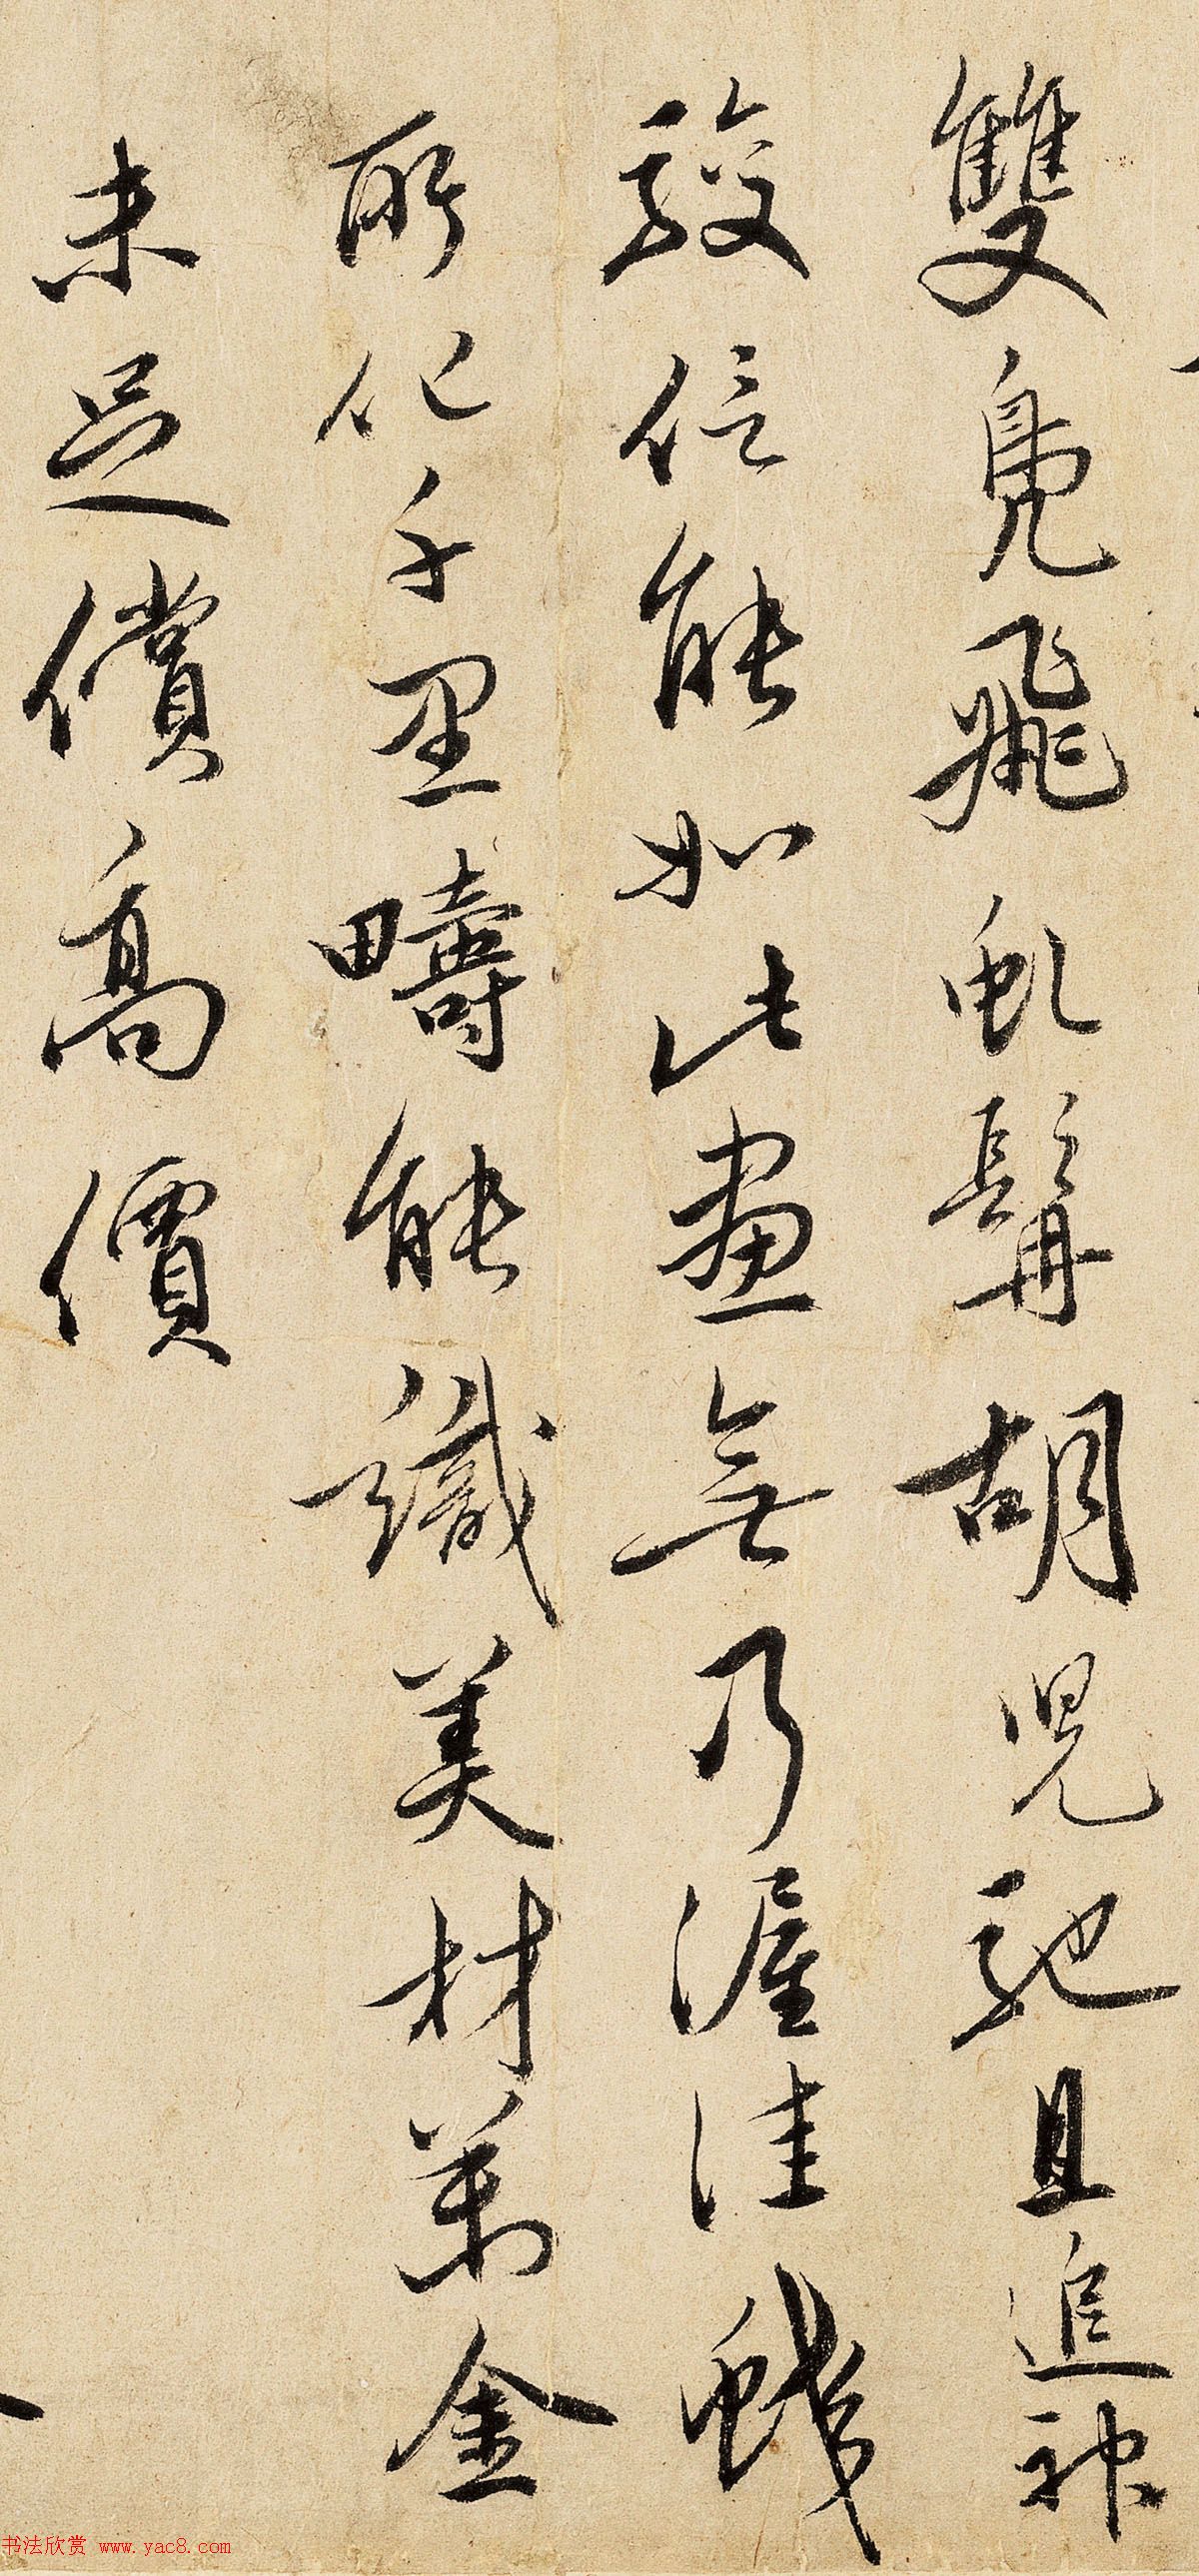 雙鳧飛虬髯胡兒馳且追神
駿信能如此畫無乃渥洼蛻
所化千里疇能識美材萬金
未足償高價
书法欣赏 www.yac8.com